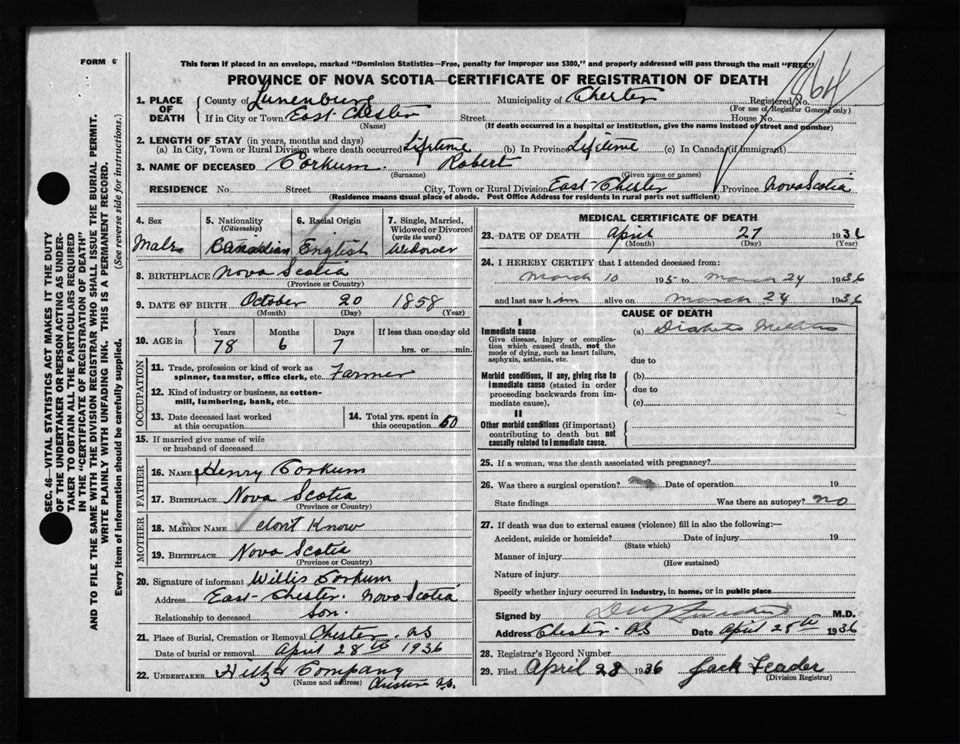 FORM 6
This form if placed in an envelope, marked "Dominion Statistics—Free, penalty for improper use $300," and properly addressed will pass through the mail "FREE"
PROVINCE OF NOVA SCOTIA—CERTIFICATE OF REGISTRATION OF DEATH
864
1. PLACE OF DEATH
County of Lunenburg Municipality of Chester Registered No.
(For use of Registrar General only)
If in City or Town East Chester Street House No.
(Name) (If death occurred in a hospital or institution, give the name instead of street and number)
2. LENGTH OF STAY (in years, months and days)
(a) In City, Town or Rural Division where death occurred Lifetime (b) In Province Lifetime (c) In Canada (if immigrant)
3. NAME OF DECEASED Corkum Robert
(Surname) (Given name or names)
RESIDENCE No Street City, Town or Rural Division East Chester Province Nova Scotia
(Residence means usual place of abode. Post Office Address for residents in rural parts not sufficient)
4. Sex Male
5. Nationality (Citizenship) Canadian
6. Racial Origin English
7. Single, Married, Widowed or Divorced (write the word) Widower
8. BIRTHPLACE Nova Scotia
(Province or Country)
9. DATE OF BIRTH October 20 1858
(Month) (Day) (Year)
10. AGE in Years Months Days If less than one day old
78 6 7 hrs. or min.
OCCUPATION
11. Trade, profession or kind of work as spinner, teamster, office clerk, etc. Farmer
12. Kind of industry or business, as cotton-mill, lumbering, bank, etc.
13. Date deceased last worked at this occupation
14. Total yrs. spent in this occupation 50
15. If married give name of wife or husband of deceased
FATHER
16. NAME Henry Corkum
17. BIRTHPLACE Nova Scotia
(Province or Country)
MOTHER
18. MAIDEN NAME dont Know
19. BIRTHPLACE Nova Scotia
(Province or Country)
20. Signature of informant Willis Corkum
Address East Chester Nova Scotia
Relationship to deceased Son
21. Place of Burial, Cremation or Removal Chester NS
Date of burial or removal April 28th 1936
22. UNDERTAKER Hiltz Company
(Name and address) Chester N.S.
MEDICAL CERTIFICATE OF DEATH
23. DATE OF DEATH April 27 1936
(Month) (Day) (Year)
24. I HEREBY CERTIFY that I attended deceased from:
March 10 195 to March 24 1936
and last saw him alive on March 24 1936
CAUSE OF DEATH
I
Immediate cause
Give disease, injury or complication which caused death, not the mode of dying, such as heart failure, asphyxia, asthenia, etc.
(a) Diabetes Mellitus
due to
Morbid conditions, if any, giving rise to immediate cause (stated in order proceeding backwards from immediate cause).
(b)
due to
(c)
II
Other morbid conditions (if important) contributing to death but not causally related to immediate cause.
25. If a woman, was the death associated with pregnancy?
26. Was there a surgical operation? no Date of operation 19
State findings Was there an autopsy? no
27. If death was due to external causes (violence) fill in also the following:—
Accident, suicide or homicide? Date of injury 19
(State which)
Manner of injury
(How sustained)
Nature of injury
Specify whether injury occurred in industry, in home, or in public place
Signed by M.D.
Address Chester NS Date April 28th 1936
28. Registrar's Record Number
29. Filed April 28 1936 Jack Leader
(Division Registrar)
SEC. 46—VITAL STATISTICS ACT MAKES IT THE DUTY
OF THE UNDERTAKER OR PERSON ACTING AS UNDER-
TAKER TO OBTAIN ALL THE PARTICULARS REQUIRED
IN THE "CERTIFICATE OF REGISTRATION OF DEATH"
AND TO FILE THE SAME WITH THE DIVISION REGISTRAR WHO SHALL ISSUE THE BURIAL PERMIT.
WRITE PLAINLY WITH UNFADING INK. THIS IS A PERMANENT RECORD.
Every item of information should be carefully supplied. (See reverse side for instructions.)